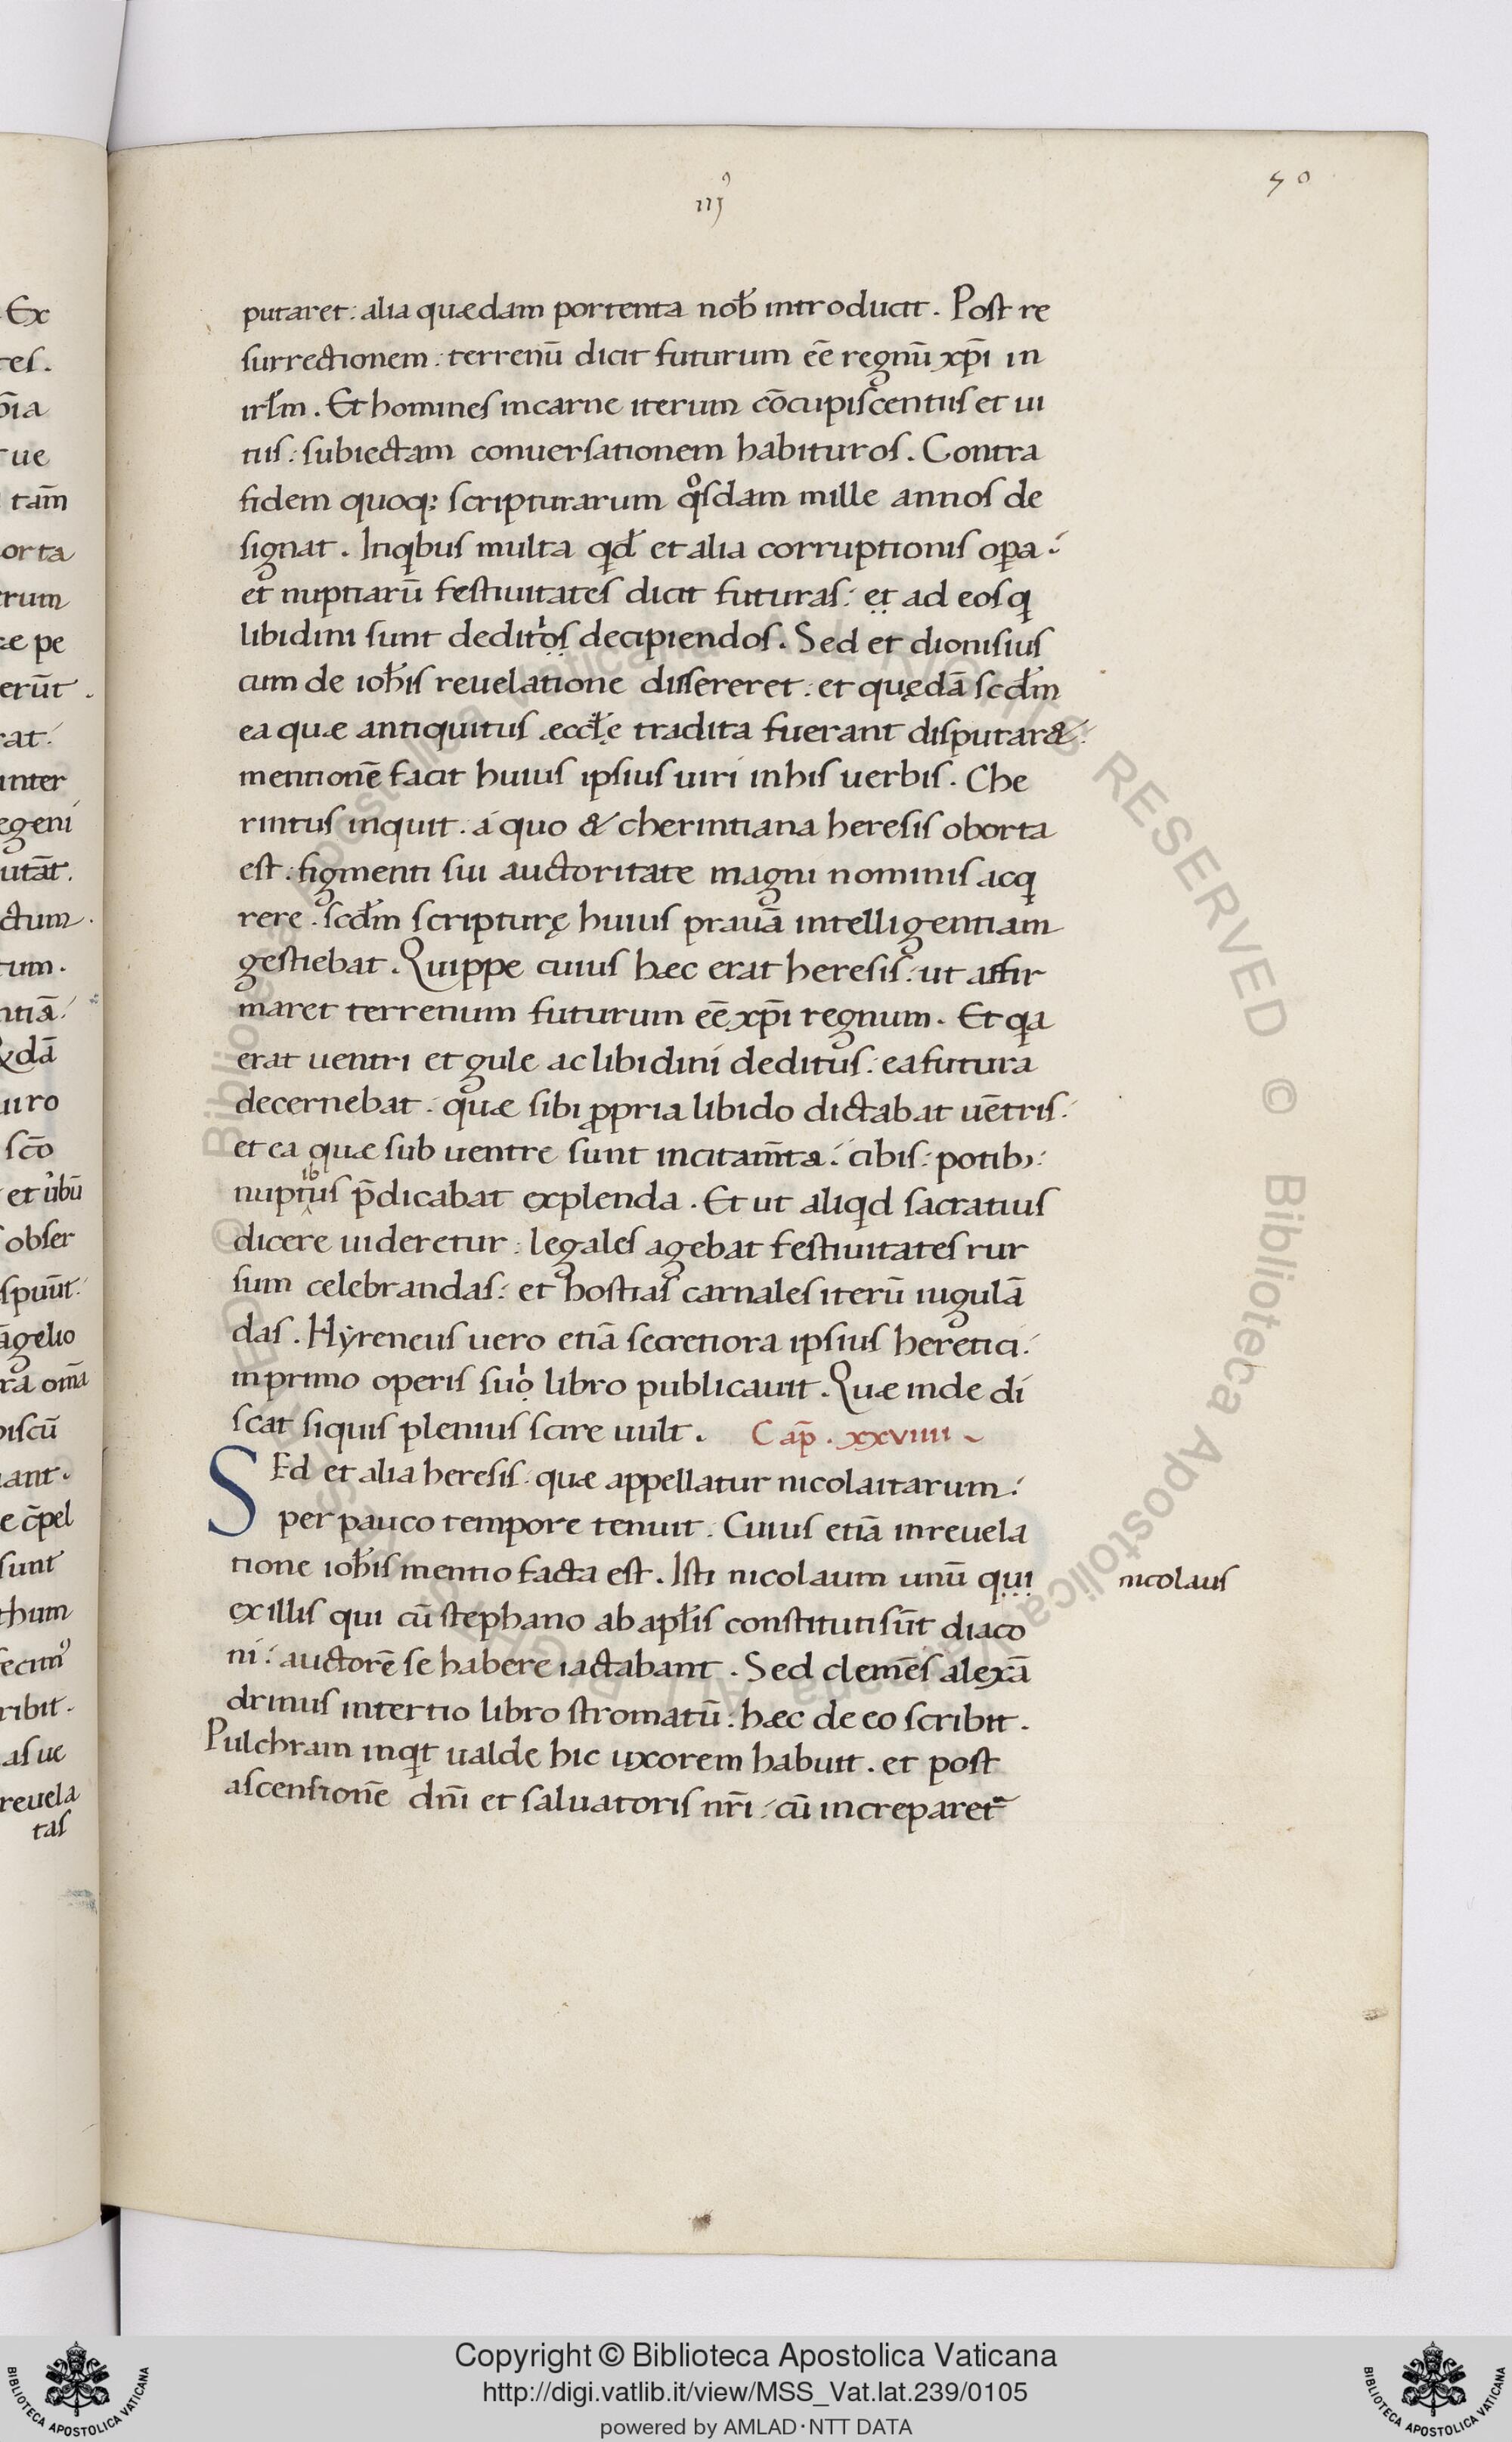 iijº
50
putaret: alia quædam portenta nob̄ introducit. Post re
surrectionem: terrenū dicit futurum eē regnū xp̄i in
irl̄m. Et homines in carne iterum cōcupiscentiis et ui
tiis: subiectam conuersationem habituros. Contra
fidem quoq; scripturarum qͦsdam mille annos de
signat. Inqͥbus multa qͥd̄ et alia corruptionis oꝑa:
et nuptiarū festiuitates dicit futuras: et ad eos qͥ
libidini sunt deditos decipiendos. Sed et dionisius
cum de ioh̄is reuelatione dissereret: et quędā scd̄m
ea quæ antiquitus æccl̄ę tradita fuerant disputar&:
mentionē facit huius ipsius uiri in his uerbis. Che
rintus inquit. á quo & cherintiana heresis oborta
est: figmenti sui auctoritate magni nominis acqͥ
rere. scd̄m scripturę huius prauā intelligentiam
gestiebat. Quippe cuius hæc erat heresis: ut affir
maret terrenum futurum eē xp̄i regnum. Et qͥa
erat uentri et gule ac libidini deditus: ea futura
decernebat. quæ sibi ꝓpria libido dictabat uētris:
et ea quæ sub uentre sunt incitam̄ta: cibis: potib;:
ib
nuptiis p̄dicabat explenda. Et ut aliqͥd sacratius
dicere uideretur: legales agebat festiuitates rur
sum celebrandas: et hostias carnales iterū iugulā
das. Hyreneus uero etiā secretiora ipsius heretici:
in primo operis suo libro publicauit. Quæ inde di
scat siquis plenius scire uult. Cap̄. xxviiii
SEd et alia heresis. quæ appellatur nicolaitarum:
per pauco tempore tenuit. Cuius etiā in reuela
tione ioh̄is mentio facta est. Isti nicolaum unū qui
nicolaus
ex illis qui cū stephano ab apl̄is constituti sūt diaco
ni: auctorē se habere iactabant. Sed clemēs alexā
drinus in tertio libro stromatū: hæc de eo scribit.
Pulchram inqͥt ualde hic uxorem habuit. et post
ascensionē dn̄i et saluatoris nr̄i: cū increparet
Ex
tes.
ue
tam̄
orta
rum
pe
erūt.
rat:
inter
egeni
utāt.
ctum.
tum.
ntiā:
dā
uiro
scō
obser
āgelio
piscū
ant.
sunt
thum
ribit.
as ue
reuela
tas
Copyright © Biblioteca Apostolica Vaticana
http://digi.vatlib.it/view/MSS_Vat.lat.239/0105
powered by AMLAD·NTT DATA
BIBLIOTECA APOSTOLICA VATICANA
BIBLIOTECA APOSTOLICA VATICANA